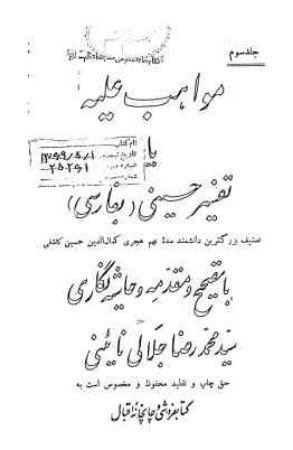 جلد سوم
مواهب علیه
یا
نام کتاب
تفسیر حسینی (بفارسی)
تصنیف بزرگترین دانشمند سدهٔ نهم هجری کمال‌الدین حسین کاشفی
با تصحیح و مقدمه و حاشیه نگاری
سید محمد رضا جلالی نائینی
حق چاپ و تقلید محفوظ و مخصوص است به
کتابفروشی و چاپخانه اقبال